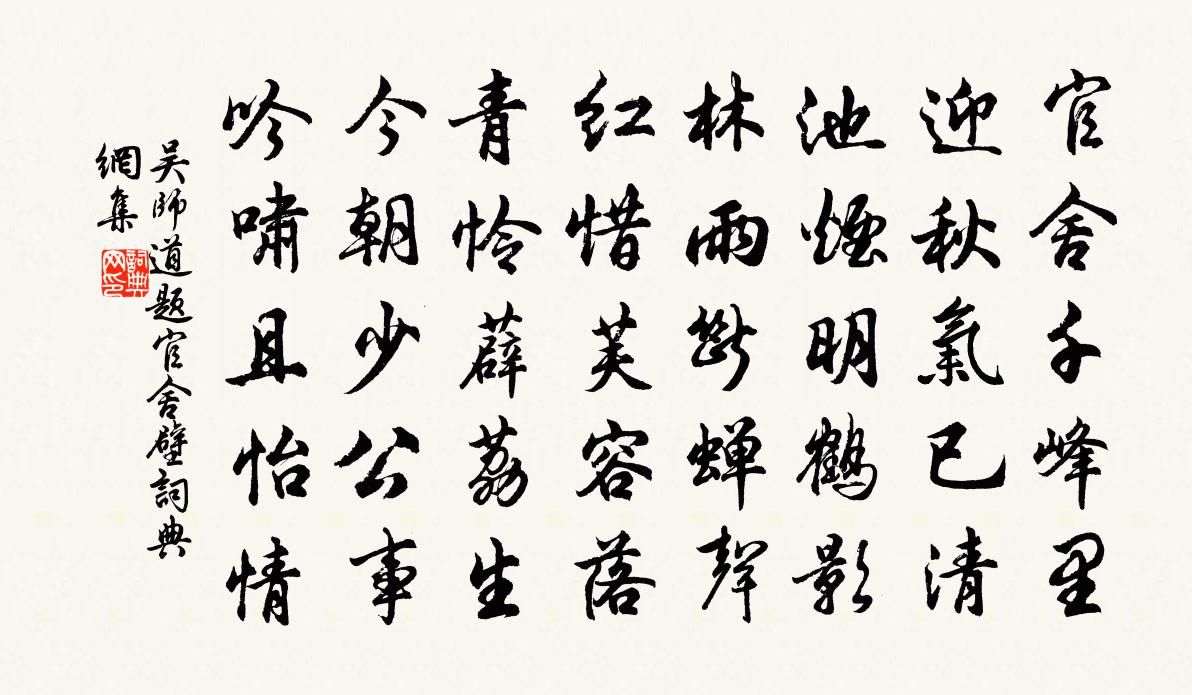 官舍千峰里
迎秋氣已清
池煙明鶴影
林雨斷蟬聲
红惜芙容落
青怜薜荔生
今朝少公事
吟嘯且怡情
吴師道题官舍壁詞典
網集
詞典网印